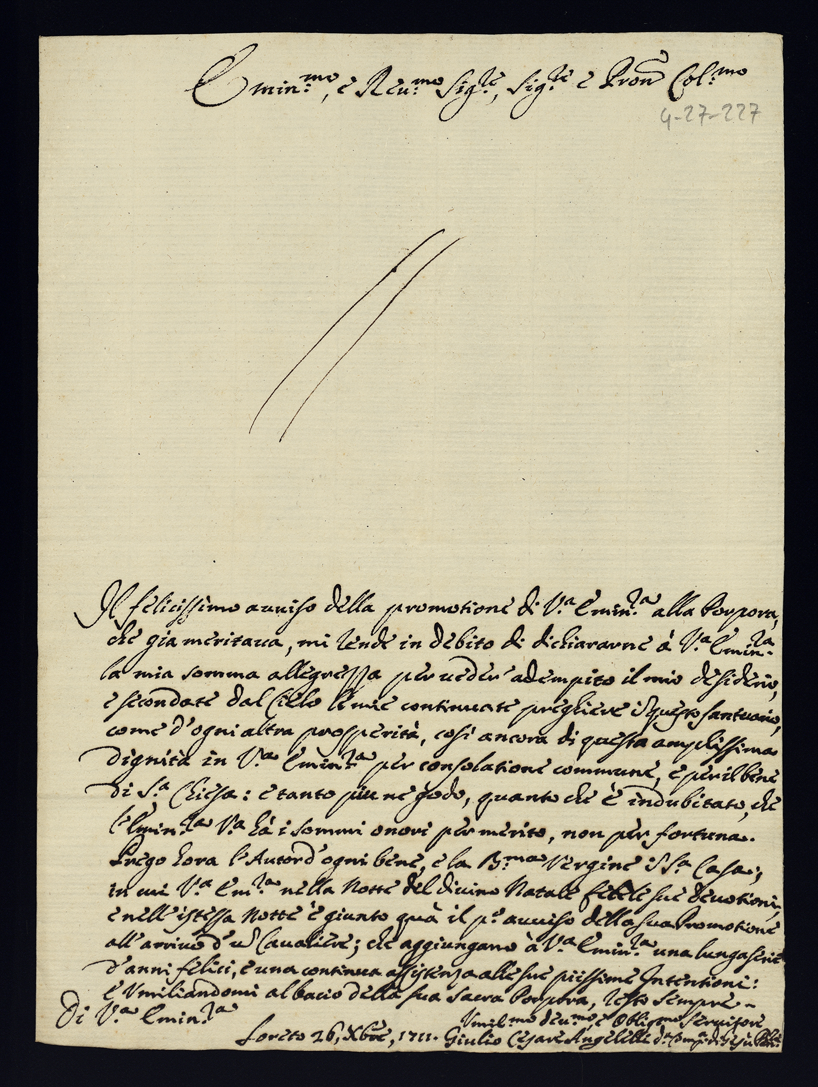 Emin:mo, e Reu:mo Sig:re, Sig:re e Pron Col:mo
4-27-227
Il felicissimo auuiso della promotione di V.a Emin:za alla Porpora,
che già meritaua, mi rende in debito di dichiararne à V.a Emin:za
la mia somma allegrezza per ueder adempito il mio desiderio,
e secondate dal Cielo le mie continuate preghiere in questo santuario,
come d'ogni altra prosperità, così ancora di questa amplissima
dignità in V.a Emin:za per consolatione commune, e per il bene
di S.a Chiesa: e tanto più ne godo, quanto che è indubitato, che
l'Emin:za V.a hà i sommi onori per merito, non per fortuna.
Prego hora l'Autor d'ogni bene, e la B.ma Vergine di S.a Casa;
in cui V.a Em:za nella Notte del diuino Natale fece le sue deuotioni,
e nell'istessa Notte è giunto quà il p.o auuiso della sua Promotione
all'arriuo d'un Caualiere; che aggiungano à V.a Emin:za una lunga serie
d'anni felici, e una continua assistenza alle sue piissime Intentioni:
e Vmiliandomi al bacio della sua Sacra Porpora, resto sempre
Di V.a Emin:za
Vmil:mo deu:mo, e Oblig:mo Seruitore
Loreto 26, Xbre, 1711. Giulio Cesare Angelelli d.a Comp.a di Giesù